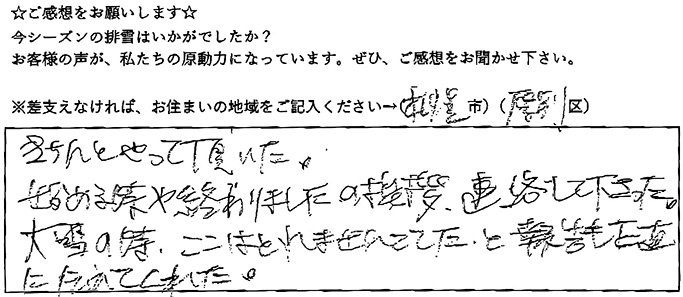 ☆ご感想をお願いします☆
今シーズンの排雪はいかがでしたか?
お客様の声が、私たちの原動力になっています。ぜひ、ご感想をお聞かせ下さい。
※差支えなければ、お住まいの地域をご記入ください→(札幌市)(厚別区)
きちんとやって頂いた。
始める時や終わりましたの挨拶、連絡して下さった。
大雪の時、ここはとれませんでした、と報告も正直
にしてくれました。